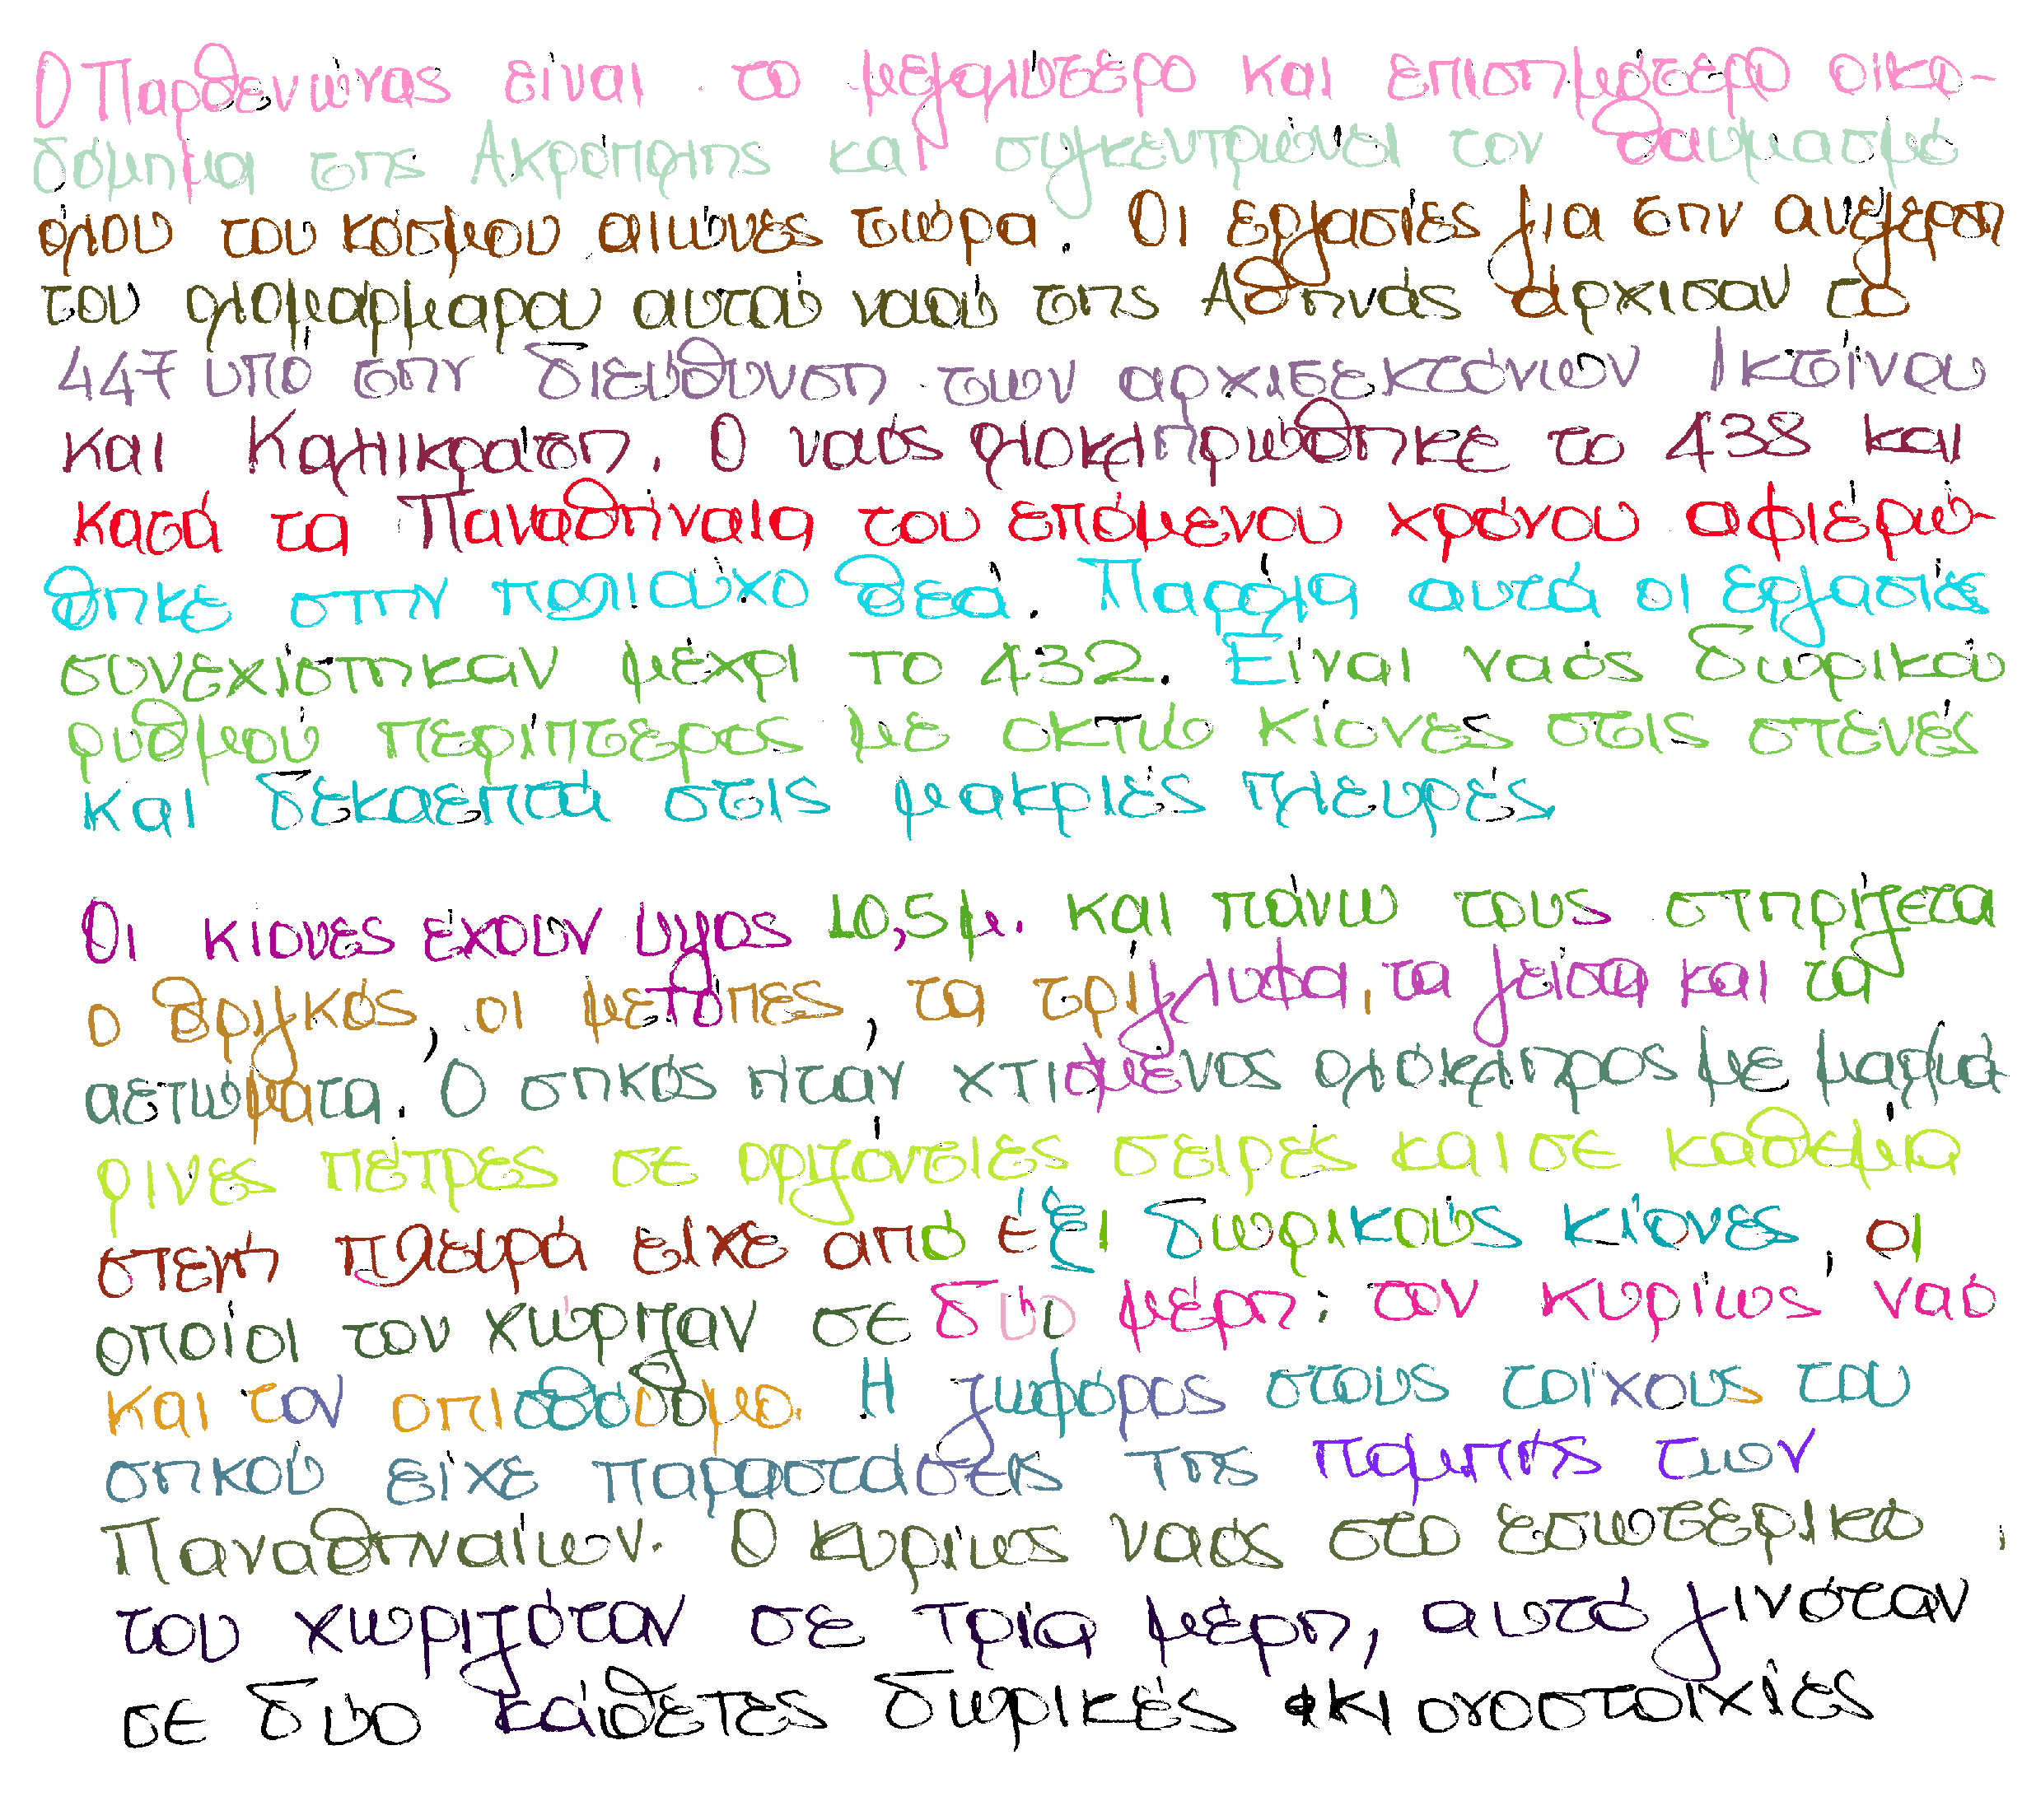 Ο Παρθενώνας είναι το μεγαλύτερο και επισημότερο οικο-
δόμημα της Ακρόπολης και συγκεντρώνει τον θαυμασμό
όλου του κόσμου αιώνες τώρα. Οι εργασίες για την ανέγερση
του ολομάρμαρου αυτού ναού της Αθηνάς άρχισαν το
447 υπό την διεύθυνση των αρχιτεκτόνων Ικτίνου
και Καλλικράτη. Ο ναός ολοκληρώθηκε το 438 και
κατά τα Παναθήναια του επόμενου χρόνου αφιερώ-
θηκε στην πολιούχο θεά. Παρόλα αυτά οι εργασίες
συνεχίστηκαν μέχρι το 432. Είναι ναός δωρικού
ρυθμού περίπτερος με οκτώ κίονες στις στενές
και δεκαεπτά στις μακριές πλευρές
Οι κιονες έχουν υψος 10,5μ. και πάνω τους στηρίζετα
ο θριγκός, οι μετόπες, τα τρίγλυφα, τα γείσα και τα
αετώματα. Ο σηκός ήταν χτισμένος ολόκληρος με μαρμά
ρινες πέτρες σε οριζόντιες σειρές και σε καθεμία
στενή πλευρά είχε από έξι δωρικούς κίονες, οι
οποίοι τον χώριζαν σε δύο μέρη: τον κυρίως ναό
και τον οπισθόδομο. Η ζωφόρος στους τοίχους του
σηκού είχε παραστάσεις της πομπής των
Παναθηναίων. Ο κυρίως ναός στο εσωτερικό
του χωριζόταν σε τρία μέρη, αυτό γινόταν
σε δύο κάθετες δωρικές κιονοστοιχίες